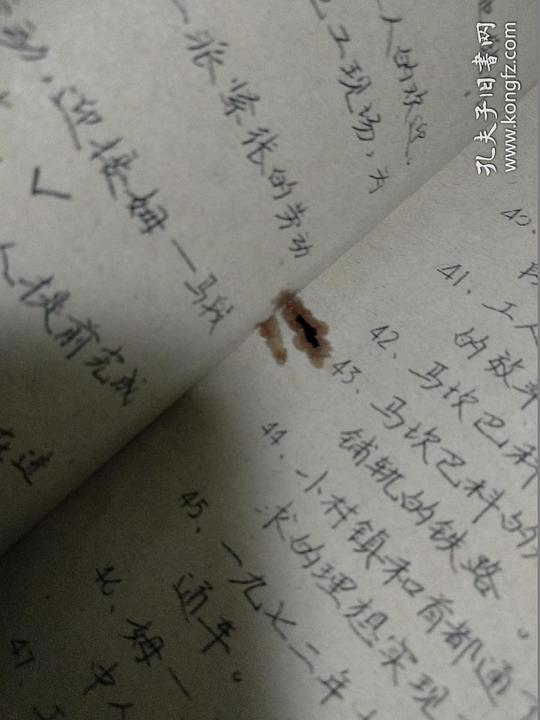 人的欢迎。
工现场，为
张紧张的劳动
动，迎接姆一马战
人提前完成
进
40.
41、工人
的效率
42、马坎巴科
43、马坎巴科的
铺轨的铁路
44、小村镇和首都通了
求的理想实现。
45、一九七二年
通车。
46、姆一
中
47、
孔夫子旧书网
www.kongfz.com